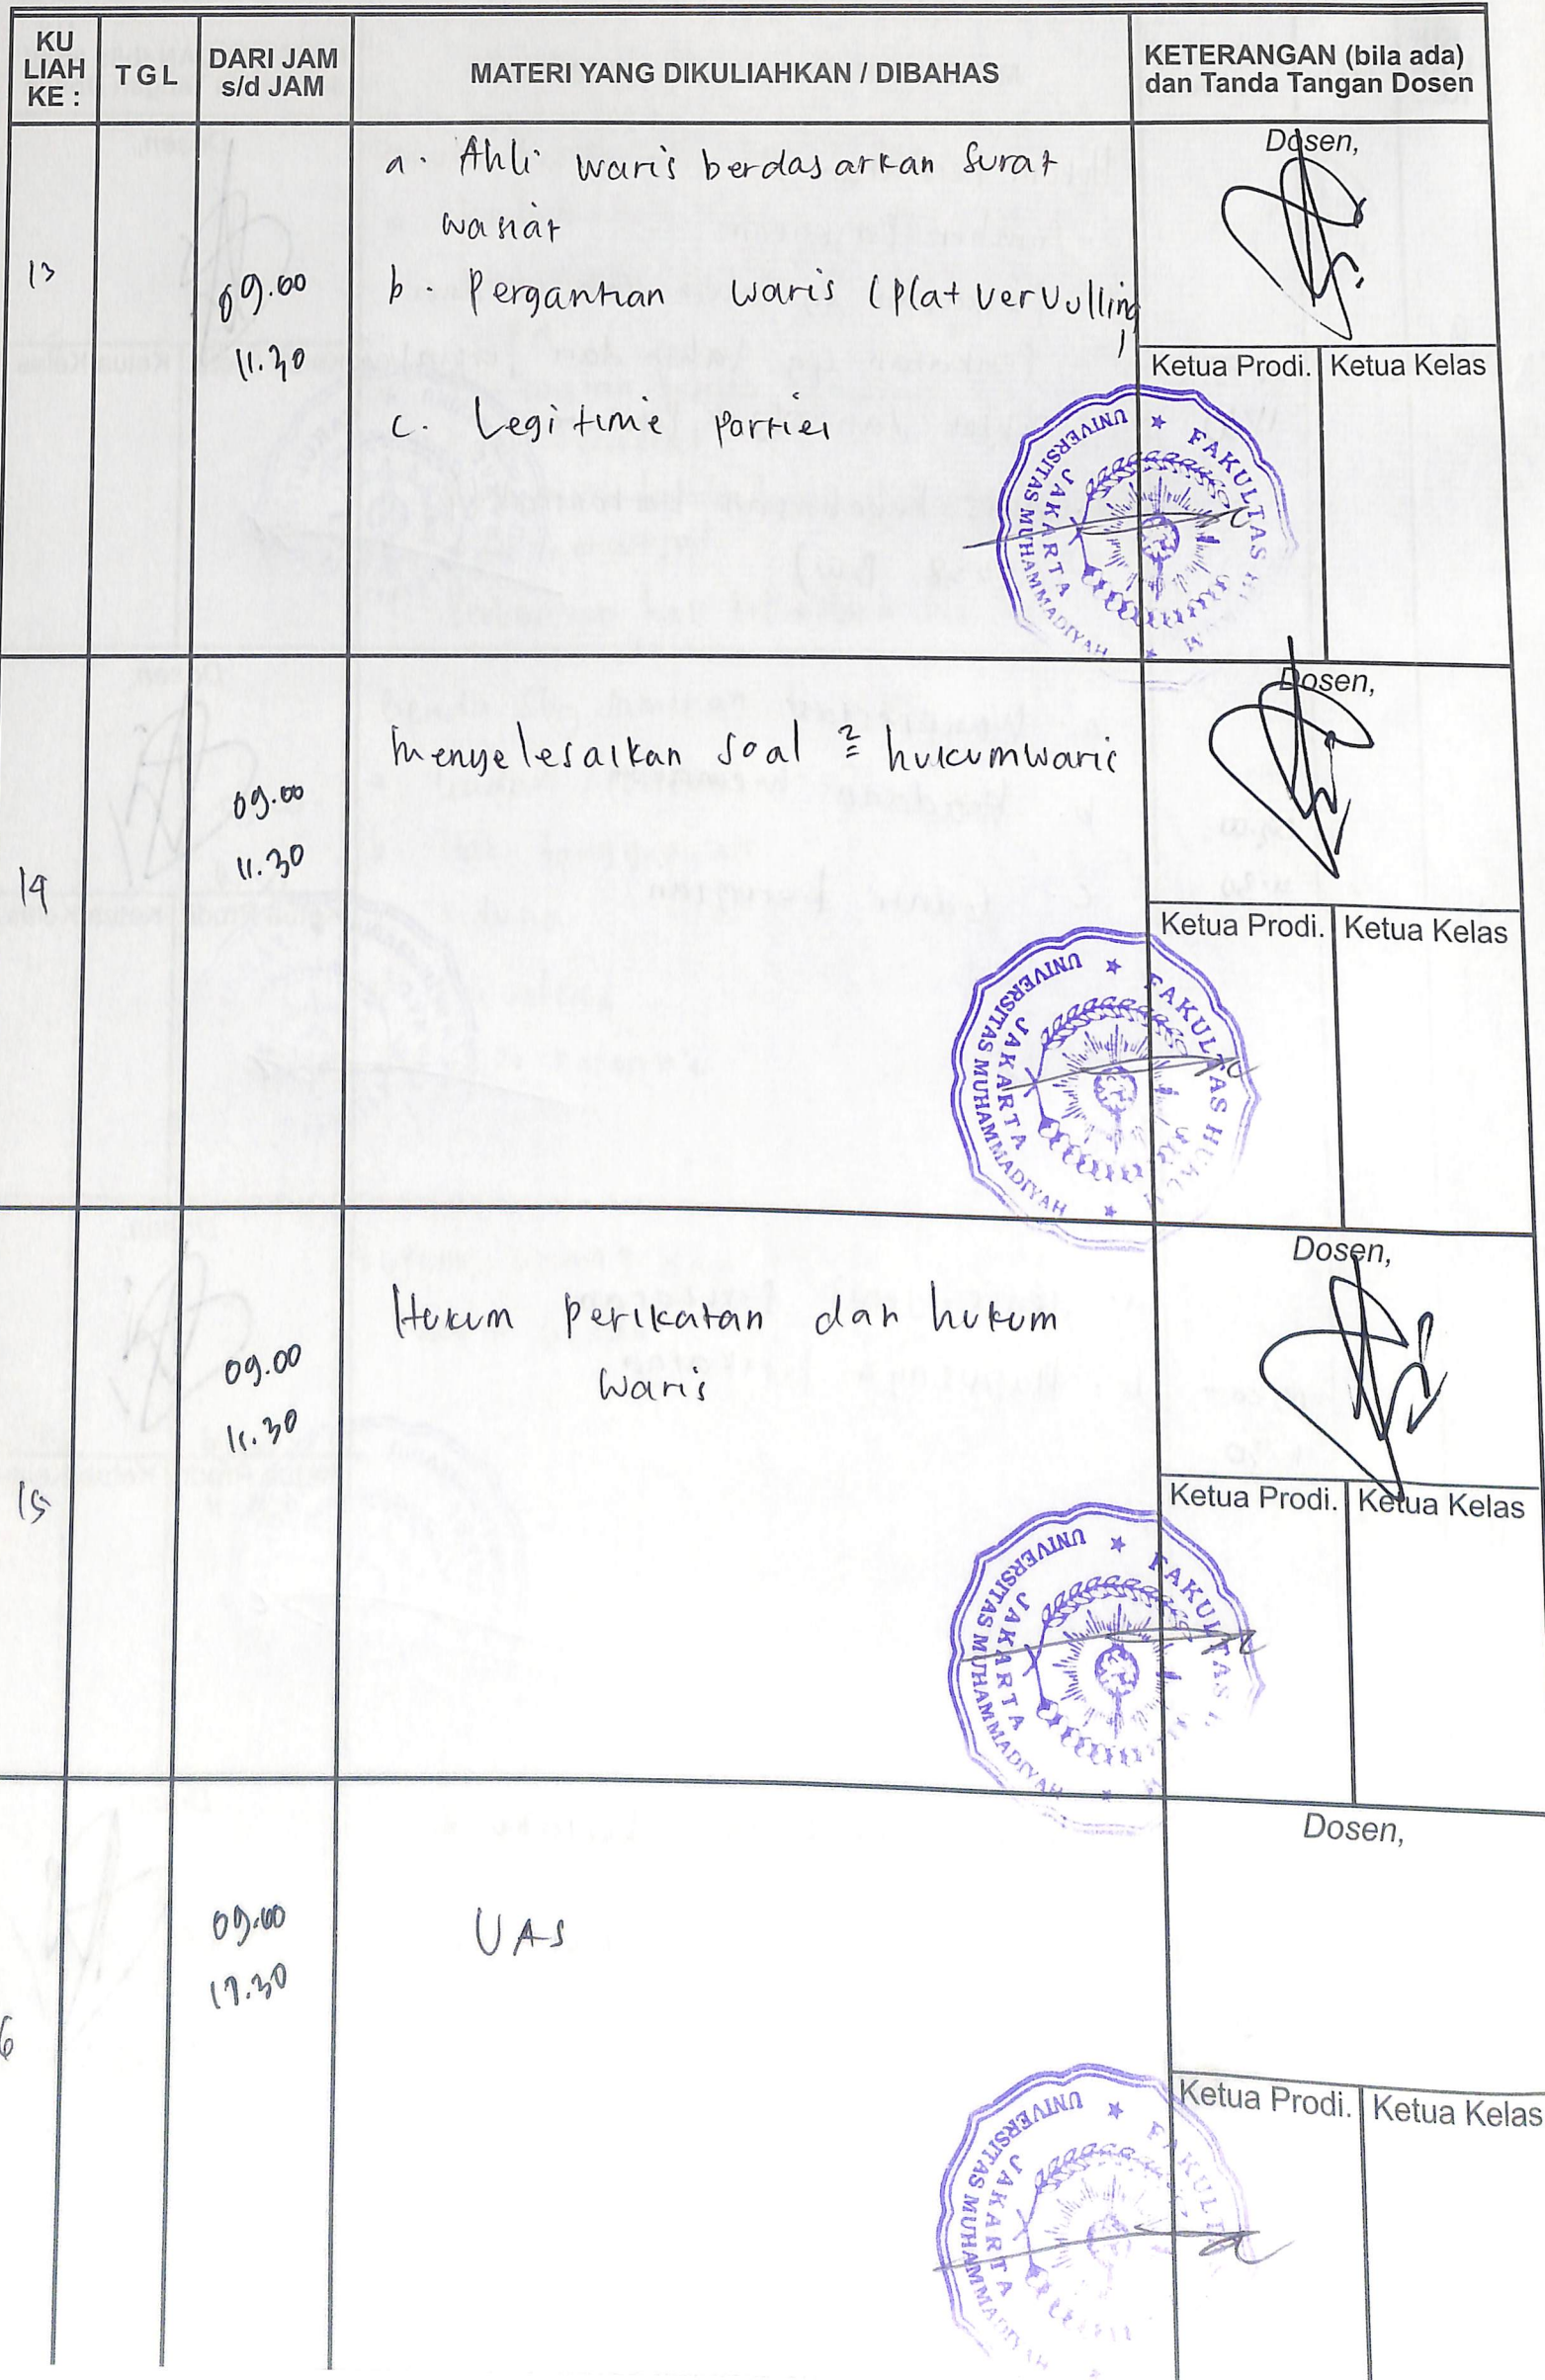 KU LIAH KE :
TGL
DARI JAM s/d JAM
MATERI YANG DIKULIAHKAN / DIBAHAS
KETERANGAN (bila ada) dan Tanda Tangan Dosen
13
09.00
11.30
a. Ahli waris berdasarkan surat
wasiat
b. Pergantian waris (Plat vervulling)
c. Legitime Parties
Dosen,
Ketua Prodi.
Ketua Kelas
UNIVERSITAS MUHAMMADIYAH
JAKARTA
FAKULTAS
14
09.00
11.30
menyelesaikan soal 2 hukum waris
Dosen,
Ketua Prodi.
Ketua Kelas
UNIVERSITAS MUHAMMADIYAH
JAKARTA
FAKULTAS HUKUM
15
09.00
11.30
Hukum Perikatan dan hukum
waris
Dosen,
Ketua Prodi.
Ketua Kelas
UNIVERSITAS MUHAMMADIYAH
JAKARTA
FAKULTAS
6
09.00
11.30
UAS
Dosen,
Ketua Prodi.
Ketua Kelas
UNIVERSITAS MUHAMMADIYAH
JAKARTA